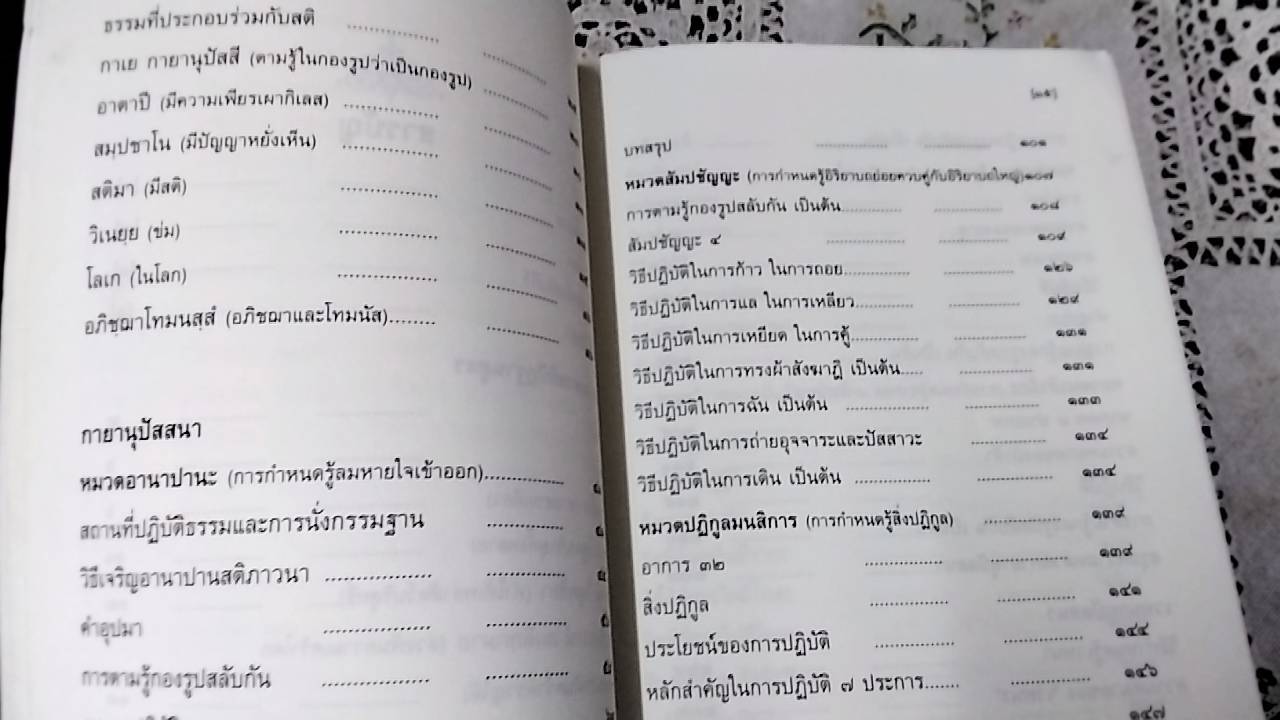 ธรรมที่ประกอบร่วมกับสติ
กาเย กายานุปัสสี (ตามรู้ในกองรูปว่าเป็นกองรูป)
อาตาปี (มีความเพียรเผากิเลส)
สมฺปชาโน (มีปัญญาหยั่งเห็น)
สติมา (มีสติ)
วิเนยฺย (ข่ม)
โลเก (ในโลก)
อภิชฺฌาโทมนสฺสํ (อภิชฌาและโทมนัส)........
กายานุปัสสนา
หมวดอานาปานะ (การกำหนดรู้ลมหายใจเข้าออก)...............
สถานที่ปฏิบัติธรรมและการนั่งกรรมฐาน
วิธีเจริญอานาปานสติภาวนา
คำอุปมา
การตามรู้กองรูปสลับกัน
[๑๕]
บทสรุป ๑๐๑
หมวดสัมปชัญญะ (การกำหนดรู้อิริยาบถย่อยควบคู่กับอิริยาบถใหญ่)๑๐๗
การตามรู้กองรูปสลับกัน เป็นต้น ๑๐๘
สัมปชัญญะ ๔ ๑๐๙
วิธีปฏิบัติในการก้าว ในการถอย ๑๒๖
วิธีปฏิบัติในการแล ในการเหลียว ๑๒๙
วิธีปฏิบัติในการเหยียด ในการคู้ ๑๓๑
วิธีปฏิบัติในการทรงผ้าสังฆาฏิ เป็นต้น..... ๑๓๑
วิธีปฏิบัติในการฉัน เป็นต้น ๑๓๓
วิธีปฏิบัติในการถ่ายอุจจาระและปัสสาวะ ๑๓๔
วิธีปฏิบัติในการเดิน เป็นต้น ๑๓๔
หมวดปฏิกูลมนสิการ (การกำหนดรู้สิ่งปฏิกูล) ๑๓๙
อาการ ๓๒ ๑๓๙
สิ่งปฏิกูล ๑๔๑
ประโยชน์ของการปฏิบัติ ๑๔๔
หลักสำคัญในการปฏิบัติ ๗ ประการ....... ๑๔๖
๑๔๗